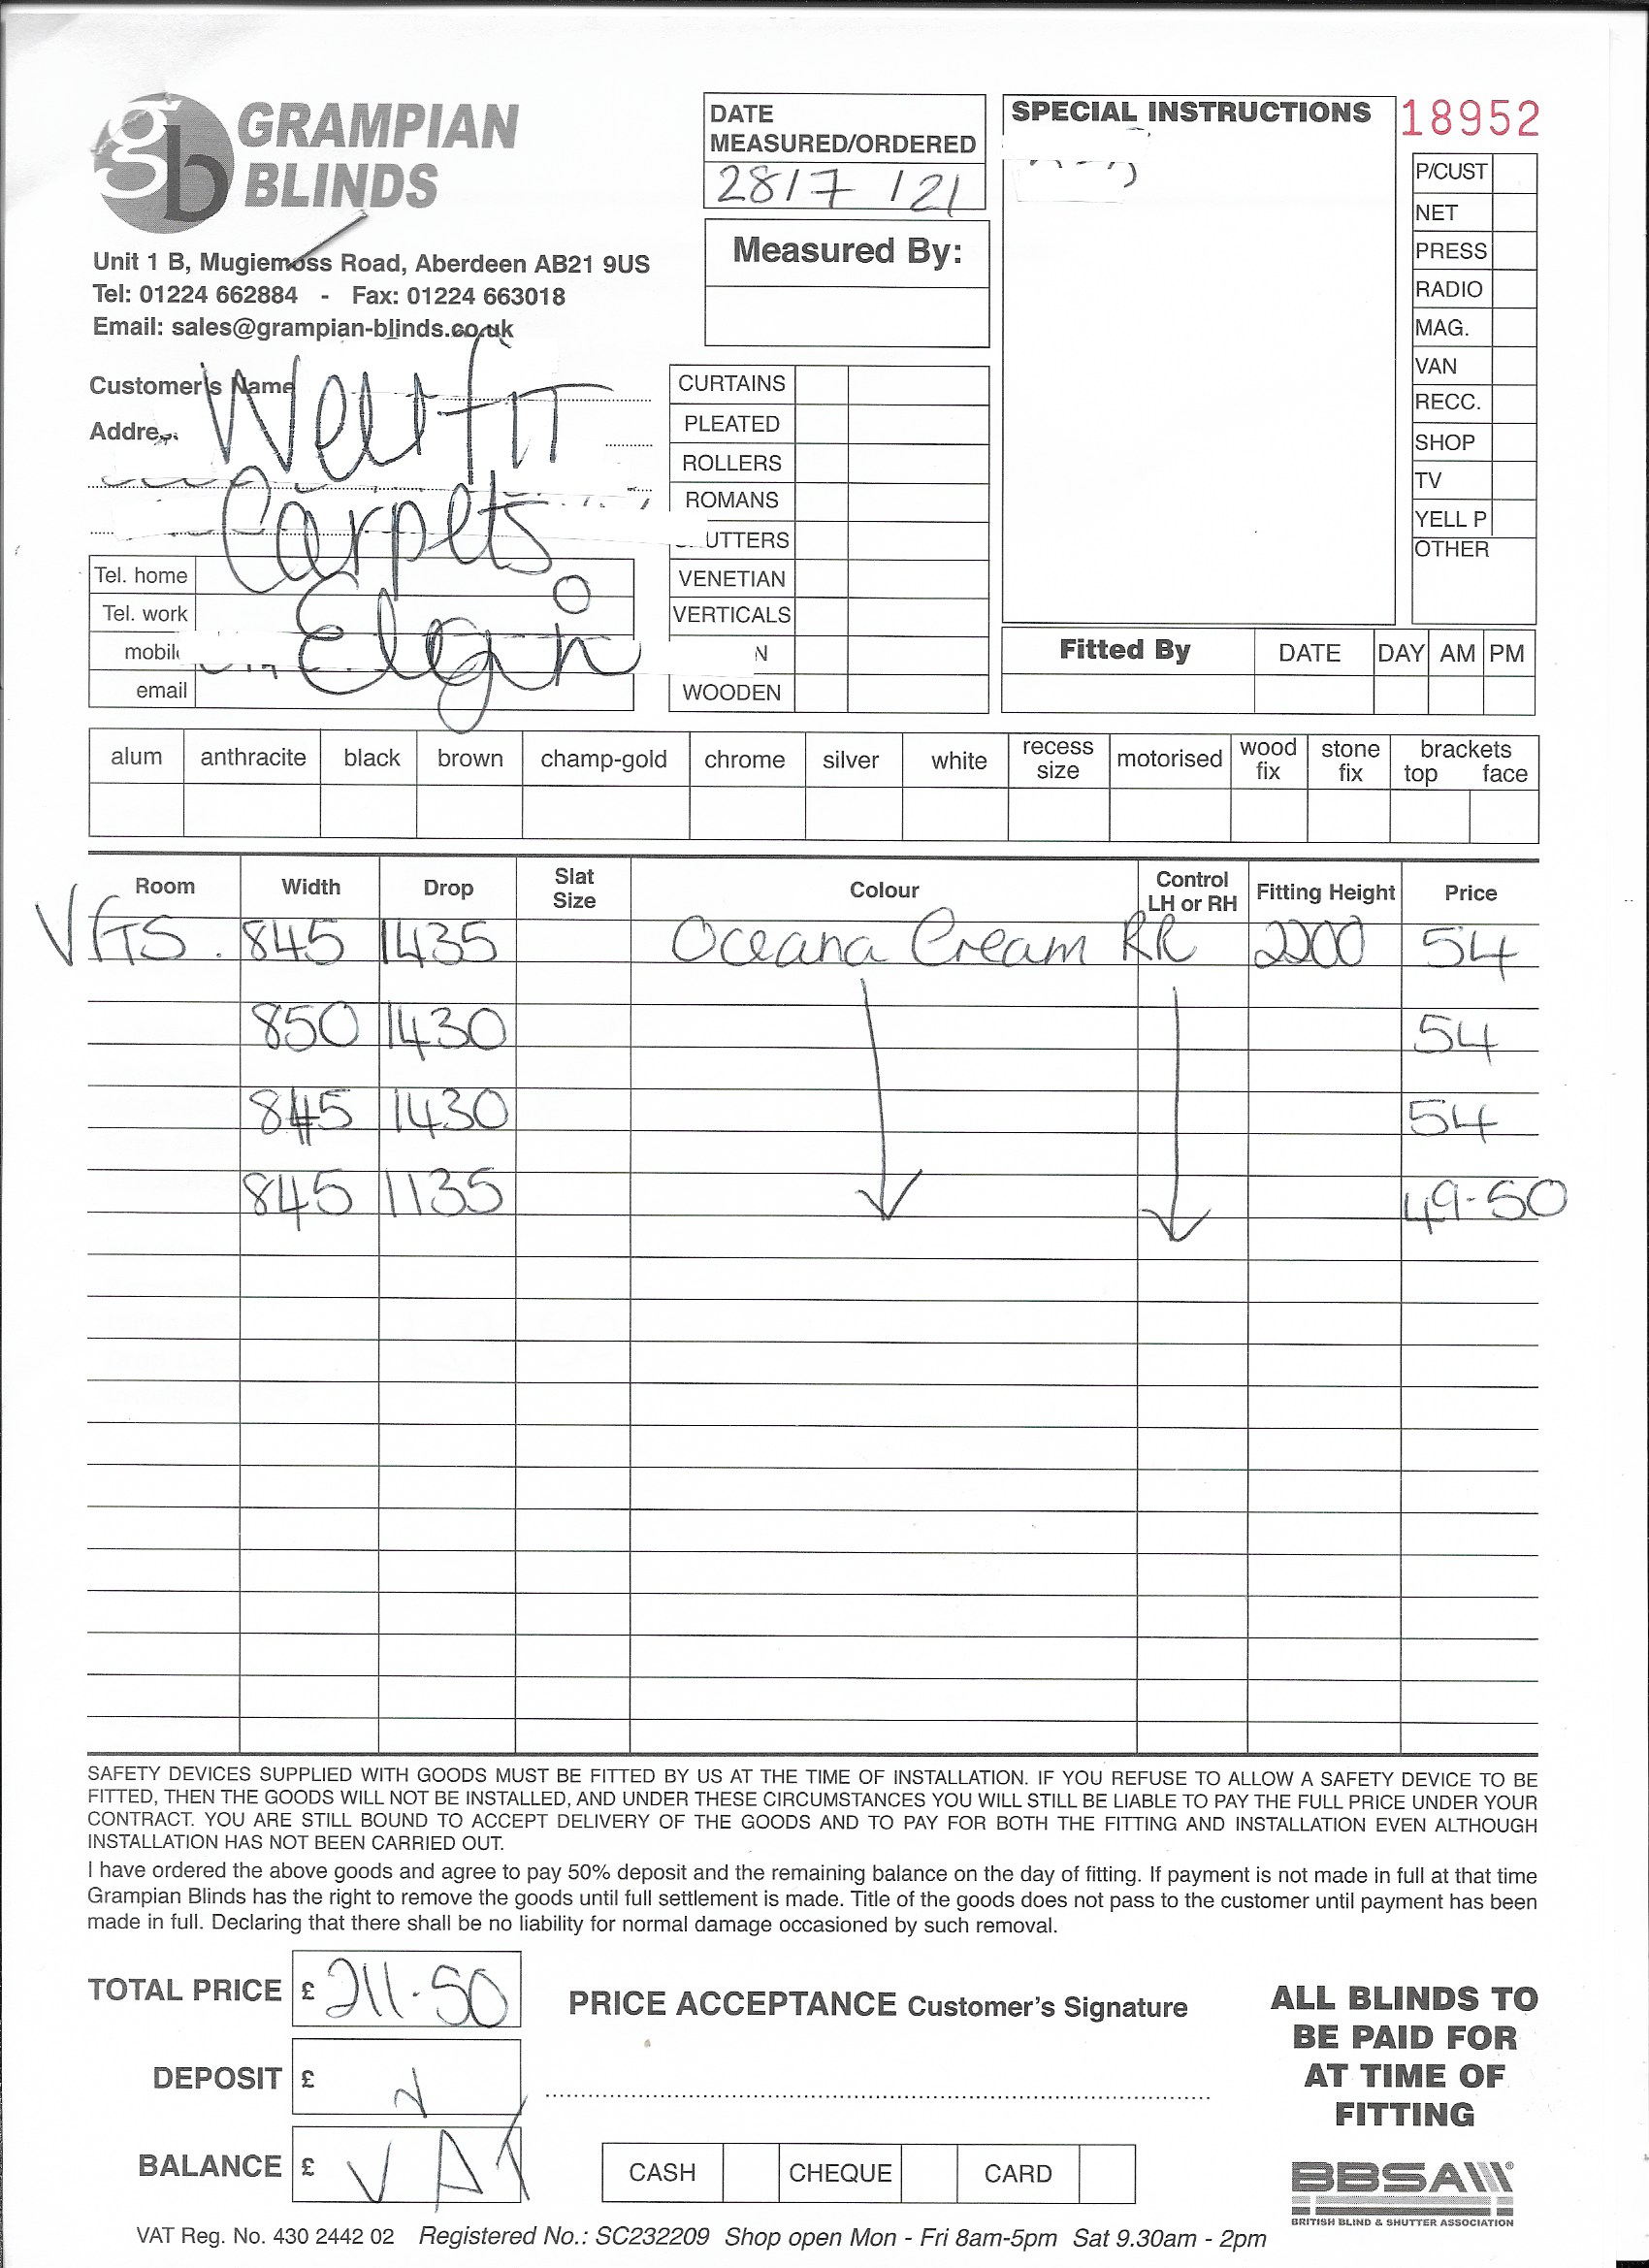 GRAMPIAN
BLINDS
Unit 1 B, Mugiemoss Road, Aberdeen AB21 9US
Tel: 01224 662884 - Fax: 01224 663018
Email: sales@grampian-blinds.co.uk
DATE
MEASURED/ORDERED
28/7/21
Measured By:
SPECIAL INSTRUCTIONS
18952
P/CUST
NET
PRESS
RADIO
MAG.
VAN
RECC.
SHOP
TV
YELL P
OTHER
Customer's Name
Wellfit
Carpets
Elgin
Tel. home
Tel. work
email
CURTAINS
PLEATED
ROLLERS
ROMANS
UTTERS
VENETIAN
VERTICALS
N
WOODEN
Fitted By DATE DAY AM PM
alum anthracite black brown champ-gold chrome silver white recess size motorised wood fix stone fix brackets top face
Room Width Drop Slat Size Colour Control LH or RH Fitting Height Price
845 1435 Oceana Cream RR 2200 54
850 1430 54
845 1430 54
845 1135 49-50
SAFETY DEVICES SUPPLIED WITH GOODS MUST BE FITTED BY US AT THE TIME OF INSTALLATION. IF YOU REFUSE TO ALLOW A SAFETY DEVICE TO BE
FITTED, THEN THE GOODS WILL NOT BE INSTALLED, AND UNDER THESE CIRCUMSTANCES YOU WILL STILL BE LIABLE TO PAY THE FULL PRICE UNDER YOUR
CONTRACT. YOU ARE STILL BOUND TO ACCEPT DELIVERY OF THE GOODS AND TO PAY FOR BOTH THE FITTING AND INSTALLATION EVEN ALTHOUGH
INSTALLATION HAS NOT BEEN CARRIED OUT.
I have ordered the above goods and agree to pay 50% deposit and the remaining balance on the day of fitting. If payment is not made in full at that time
Grampian Blinds has the right to remove the goods until full settlement is made. Title of the goods does not pass to the customer until payment has been
made in full. Declaring that there shall be no liability for normal damage occasioned by such removal.
TOTAL PRICE £ 211.50
PRICE ACCEPTANCE Customer's Signature
DEPOSIT £
BALANCE £ VAT
CASH CHEQUE CARD
ALL BLINDS TO
BE PAID FOR
AT TIME OF
FITTING
BBSA
BRITISH BLIND & SHUTTER ASSOCIATION
VAT Reg. No. 430 2442 02 Registered No.: SC232209 Shop open Mon - Fri 8am-5pm Sat 9.30am - 2pm